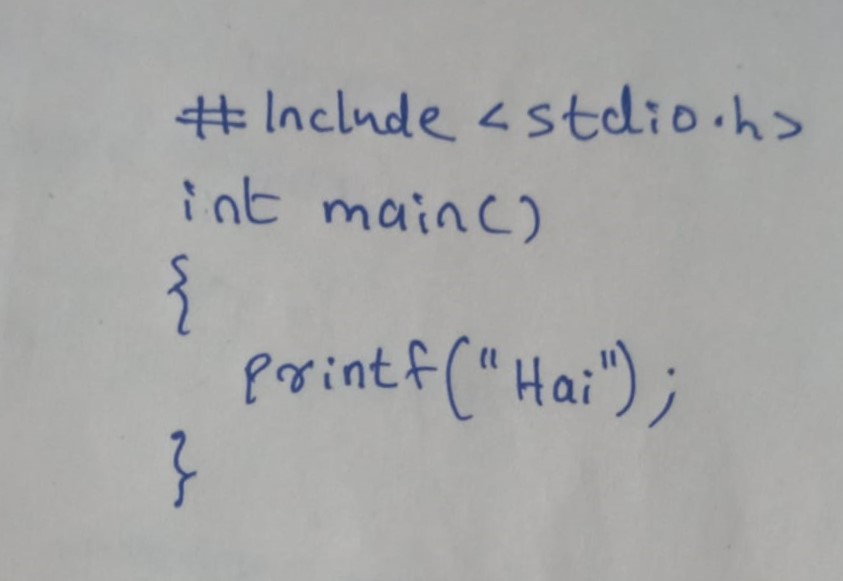 # Include <stdio.h>
int main()
{
printf("Hai");
}